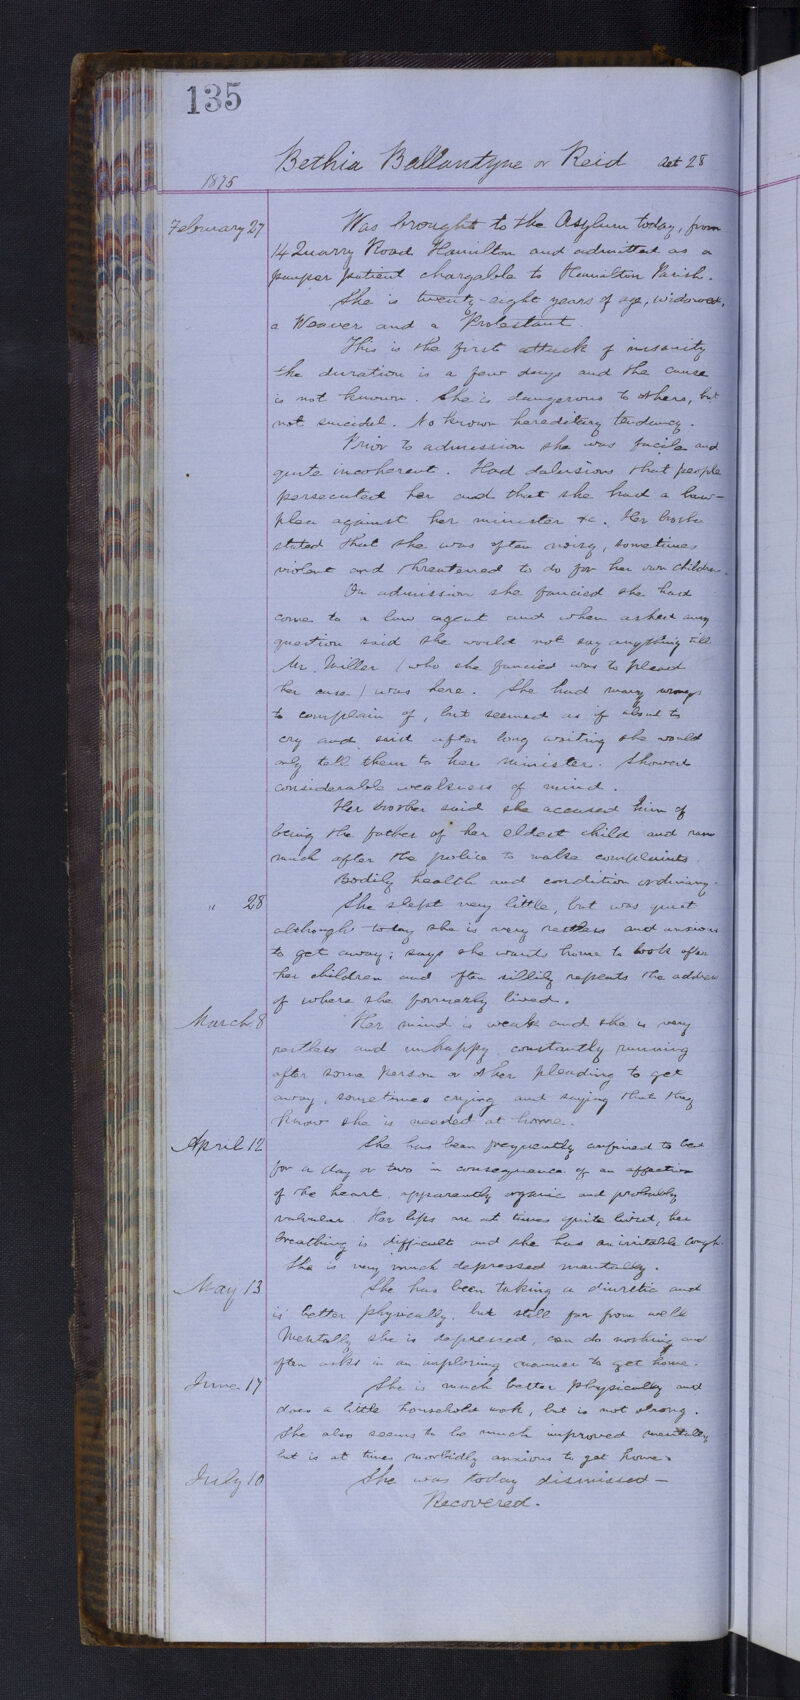 135
Bethia Ballantyne or Reid aet 28
1875
February 27 Was brought to the Asylum today, from
14 Quarry Road Hamilton and admitted as a
pauper patient chargable to Hamilton Parish.
She is twenty-eight years of age, widowed,
a Weaver and a Protestant.
This is the first attack of insanity
the duration is a few days and the cause
is not known. She is dangerous to others, but
not suicidal. No known hereditary tendancy.
Prior to admission she was facile and
quite incoherent. Had delusions that people
persecuted her and that she had a law-
plea against her minister &c. Her brother
stated that she was often noisy, sometimes
violent and threatened to do for her own children.
On admission she fancied she had
come to a law agent and when asked any
question said she would not say anything till
Mr. Miller (who she fancied was to plead
her case) was here. She had many wrongs
to complain of, but seemed as if about to
cry and said after long waiting she would
only tell them to her minister. Showed
considerable weakness of mind.
Her brother said she accused him of
being the father of her eldest child and ran
much after the police to make complaints.
Bodily health and condition ordinary.
" 28 She slept very little, but was quiet
although today she is very restless and anxious
to get away; says she wants home to look after
her children and often sillily repeats the address
of where she formerly lived.
March 8 Her mind is weak and she is very
restless and unhappy constantly running
after some person or other pleading to get
away, sometimes crying and saying that they
know she is needed at home.
April 12 She has been frequently confined to bed
for a day or two in consequence of an affection
of the heart, apparently organic and probably
valvular. Her lips are at times quite livid, her
breathing is difficult and she has an irritable cough.
She is very much depressed mentally.
May 13 She has been taking a diuretic and
is better physically, but still far from well
Mentally she is depressed, can do nothing and
often asks in an imploring manner to get home.
June 17 She is much better physically and
does a little household work, but is not strong.
She also seems to be much improved mentally
but is at times morbidly anxious to get home.
July 10 She was today dismissed—
Recovered.